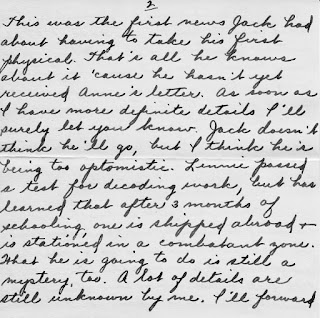 2
This was the first news Jack had
about having to take his first
physical. That's all he knows
about it 'cause he hasn't yet
received Anne's letter. As soon as
I have more definite details I'll
surely let you know. Jack doesn't
think he'll go, but I think he is
being too optomistic. Linnie passed
a test for decoding work, but has
learned that after 3 months of
schooling one is shipped abroad +
is stationed in a combatant zone.
What he is going to do is still a
mystery, too. A lot of details are
still unknown by me. I'll forward